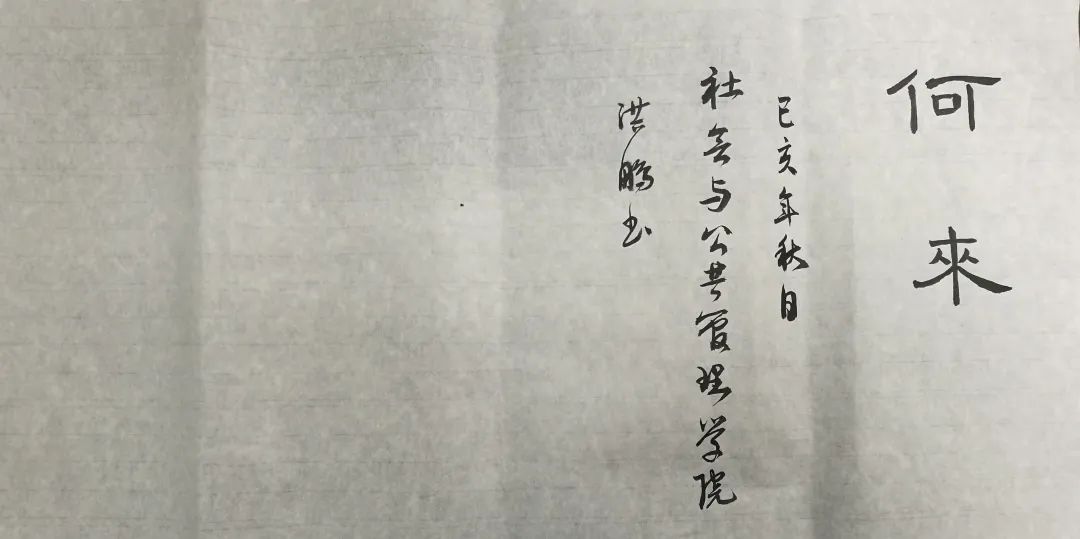 何來
己亥年秋日
社会与公共管理学院
洪鹏书